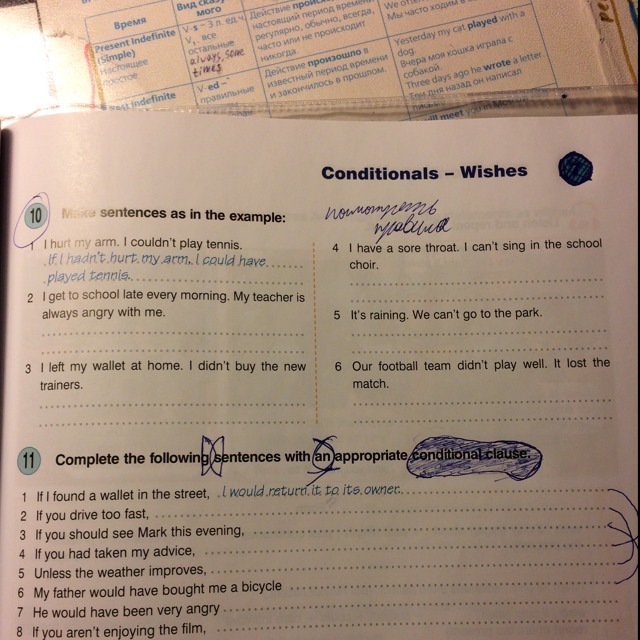 Время
Вид ска
мого
Present Indefinite
(Simple)
Настоящее
простое
V-s – 3 л. ед.ч
V, все
остальные
always, some
times
Действие происх
настоящий период времени
регулярно, обычно, всегда,
часто или не происходит
никогда.
We ofte
Мы часто ходим в
Indefinite
V-ed –
правильные
Действие произошло в
известный период времени
и закончилось в прошлом.
Yesterday my cat played with a
dog.
Вчера моя кошка играла с
собакой.
Three days ago he wrote a letter.
Три дня назад он написал
Conditionals – Wishes
посмотреть
правила
10 Make sentences as in the example:
1 I hurt my arm. I couldn't play tennis.
If I hadn't hurt my arm, I could have
played tennis.
2 I get to school late every morning. My teacher is
always angry with me.
3 I left my wallet at home. I didn't buy the new
trainers.
4 I have a sore throat. I can't sing in the school
choir.
5 It's raining. We can't go to the park.
6 Our football team didn't play well. It lost the
match.
11 Complete the following sentences with an appropriate conditional clause.
1 If I found a wallet in the street, I would return it to its owner.
2 If you drive too fast,
3 If you should see Mark this evening,
4 If you had taken my advice,
5 Unless the weather improves,
6 My father would have bought me a bicycle
7 He would have been very angry
8 If you aren't enjoying the film,